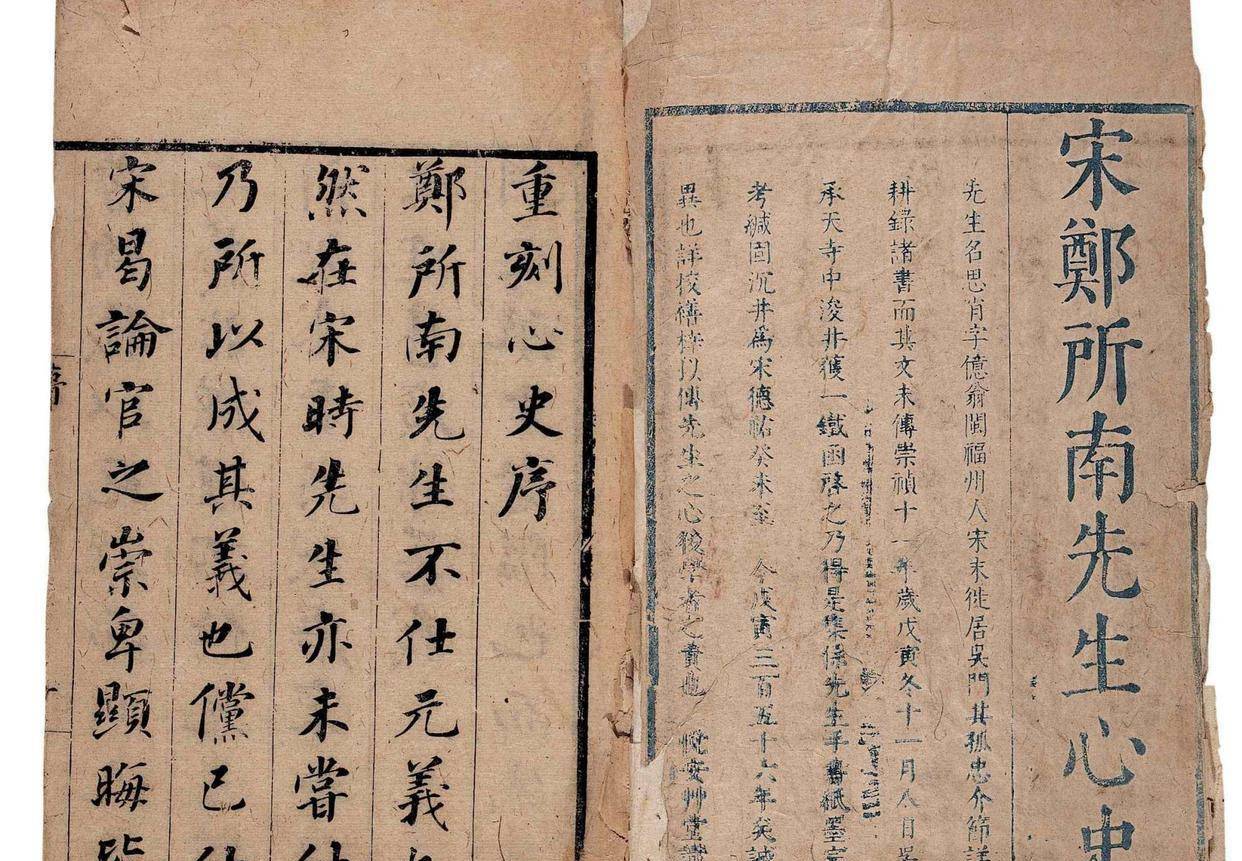 宋鄭所南先生心史
先生名思肖字億翁閩福州人宋末徙居吳門其孤忠介節詳
耕錄諸書而其文未傳崇禎十一年歲戊寅冬十一月八日吳
承天寺中浚井獲一鐵函啓之乃得是集係先生手書紙墨完
考緘固沉井爲宋德祐癸未至 今戊寅三百五十六年矣誠
異也詳挍繕梓以傳先生之心後學者之責也 悅安艸堂識
重刻心史序
鄭所南先生不仕元義
然在宋時先生亦未嘗仕
乃所以成其義也儻已仕
宋曷論官之崇卑顯晦皆
序